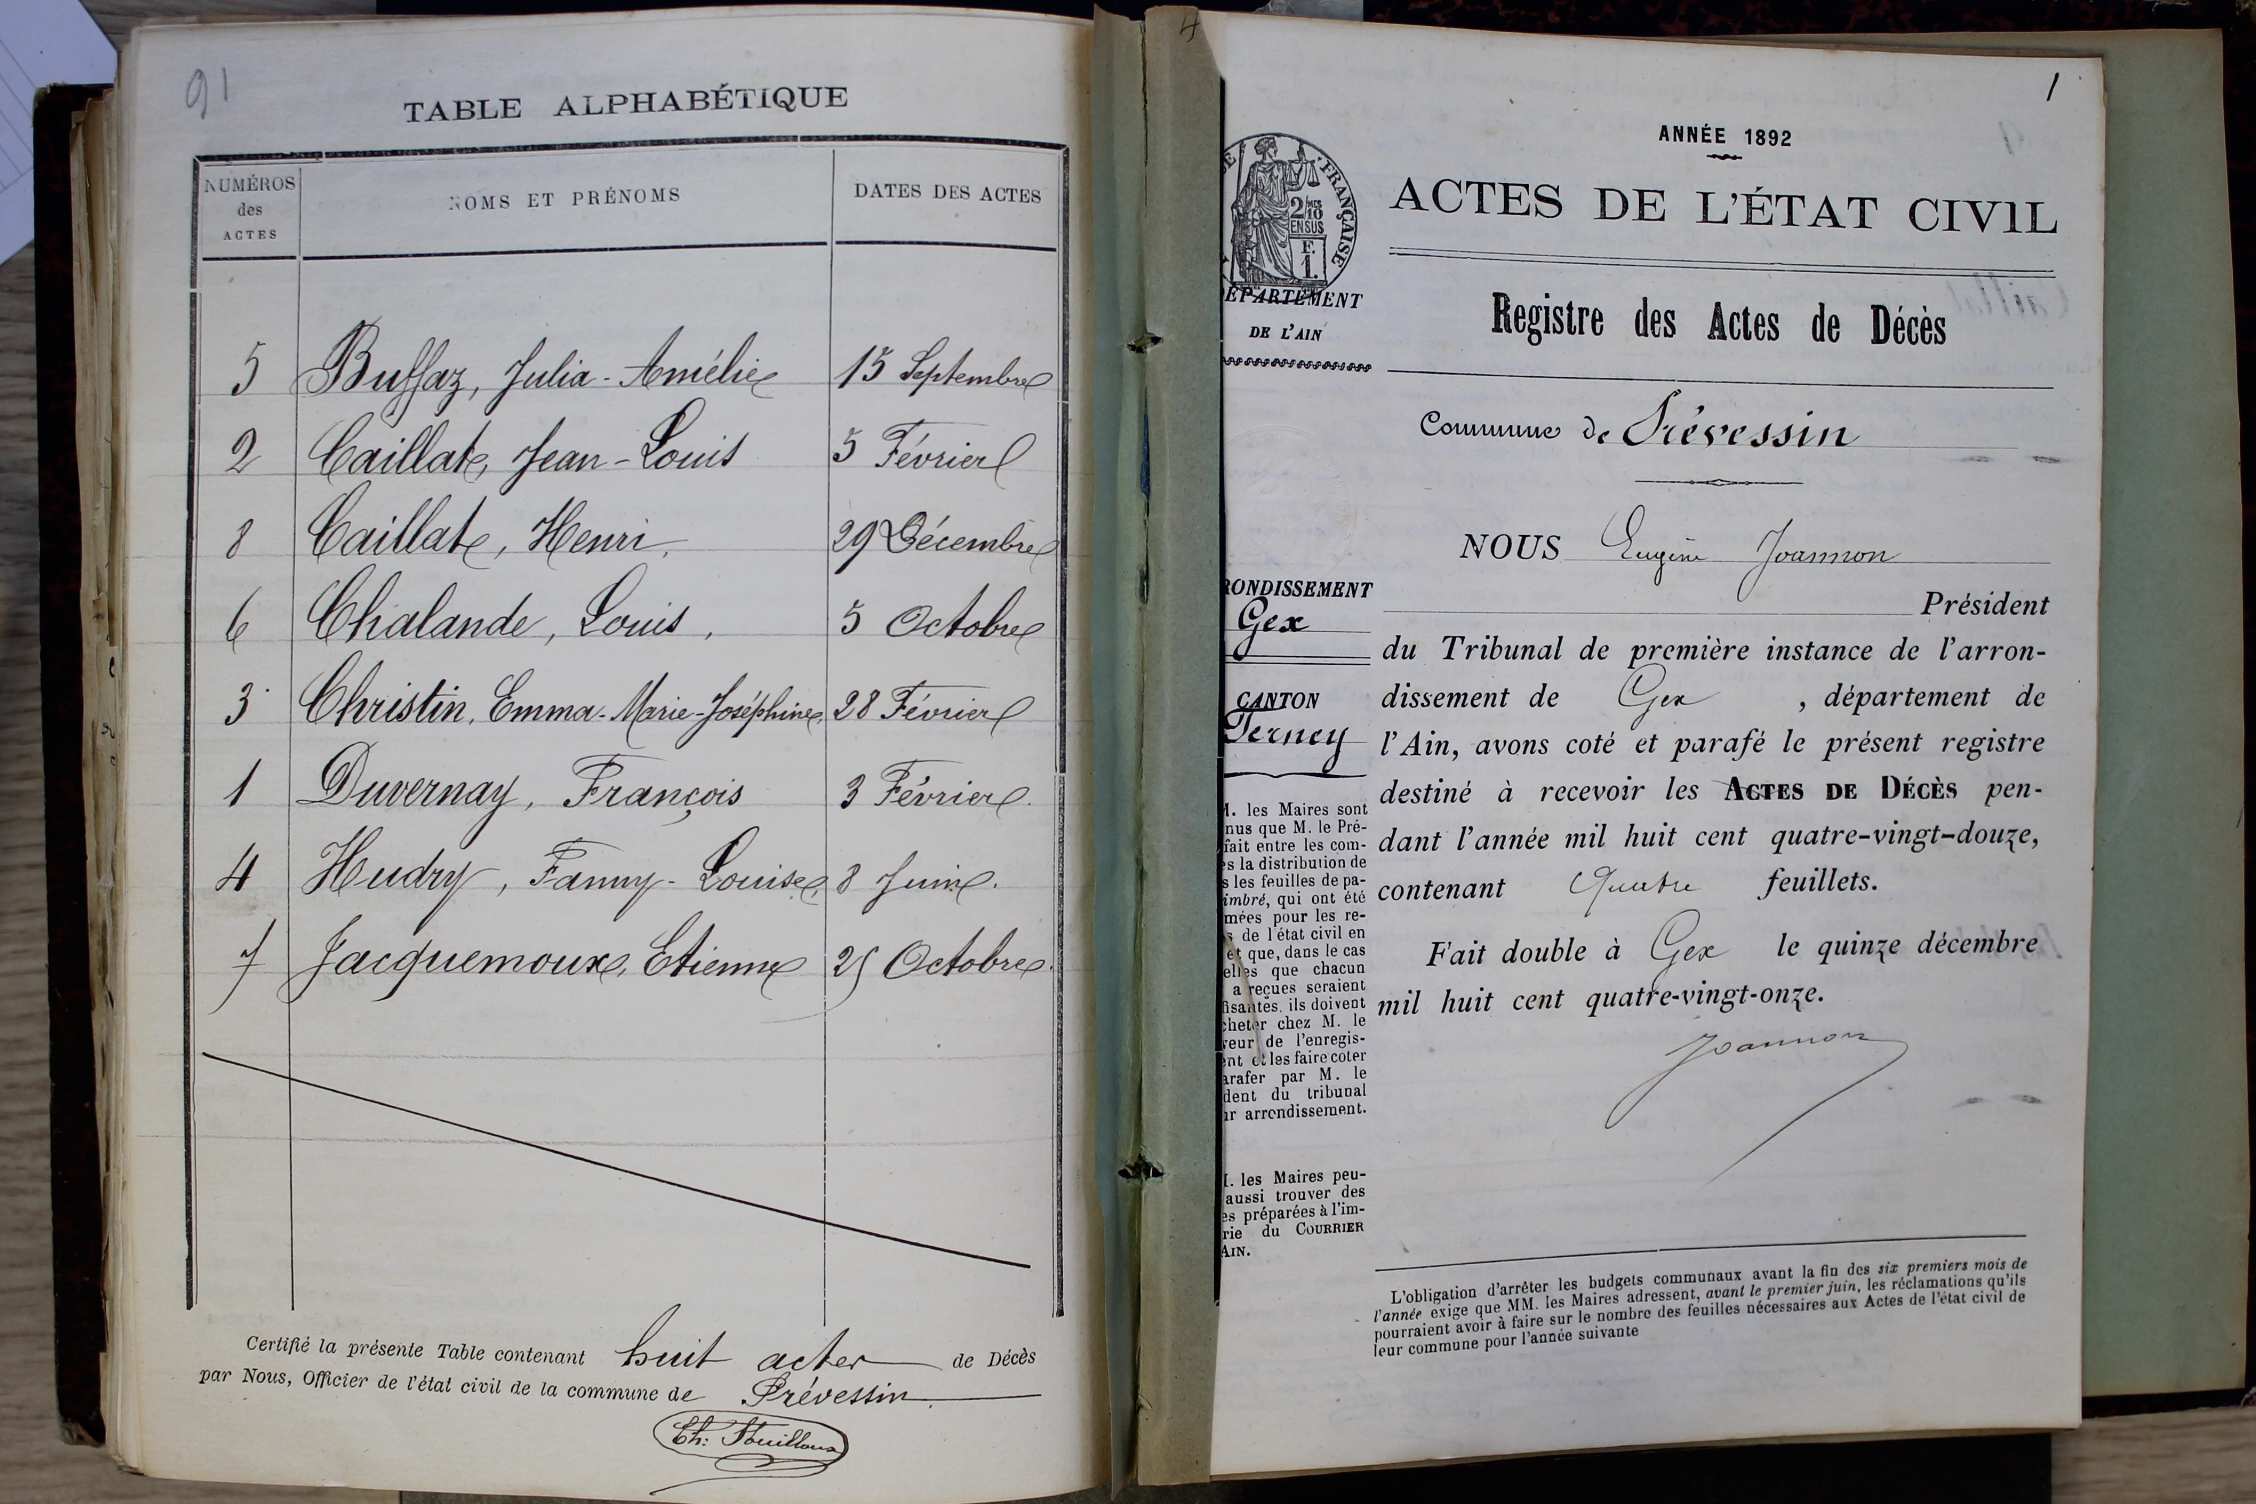 91
TABLE ALPHABÉTIQUE
NUMÉROS des ACTES
NOMS ET PRÉNOMS
DATES DES ACTES
5 Buffaz, Julia-Amélie 15 Septembre
2 Caillat, Jean-Louis 5 Février
8 Caillat, Henri. 29 Décembre
6 Chalande, Louis. 5 Octobre
3 Christin, Emma-Marie-Joséphine. 28 Février
1 Duvernay, François 3 Février.
4 Hudry, Fanny-Louise 8 Juin.
7 Jacquemoux, Etienne 25 Octobre.
Certifié la présente Table contenant huit actes de Décès
par Nous, Officier de l'état civil de la commune de Prévessin.
4
1
ANNÉE 1892
ACTES DE L'ÉTAT CIVIL
FRANÇAISE
2/10 MES
EN SUS
F.
1.
ÉPARTEMENT
DE L'AIN
Registre des Actes de Décès
Commune de Prévessin
NOUS Eugène Joannon
Président
du Tribunal de première instance de l'arron-
dissement de Gex, département de
l'Ain, avons coté et parafé le présent registre
destiné à recevoir les ACTES DE DÉCÈS pen-
dant l'année mil huit cent quatre-vingt-douze,
contenant Quatre feuillets.
Fait double à Gex le quinze décembre
mil huit cent quatre-vingt-onze.
Joannon
RONDISSEMENT
Gex
CANTON
Ferney
M. les Maires sont
nus que M. le Pré-
fait entre les com-
es la distribution de
s les feuilles de pa-
imbré, qui ont été
mées pour les re-
s de l'état civil en
et que, dans le cas
elles que chacun
a reçues seraient
fisantes, ils doivent
cheter chez M. le
veur de l'enregis-
ent et les faire coter
arafer par M. le
dent du tribunal
ur arrondissement.
M. les Maires peu-
aussi trouver des
es préparées à l'im-
rie du COURRIER
AIN.
L'obligation d'arrêter les budgets communaux avant la fin des six premiers mois de
l'année exige que MM. les Maires adressent, avant le premier juin, les réclamations qu'ils
pourraient avoir à faire sur le nombre des feuilles nécessaires aux Actes de l'état civil de
leur commune pour l'année suivante